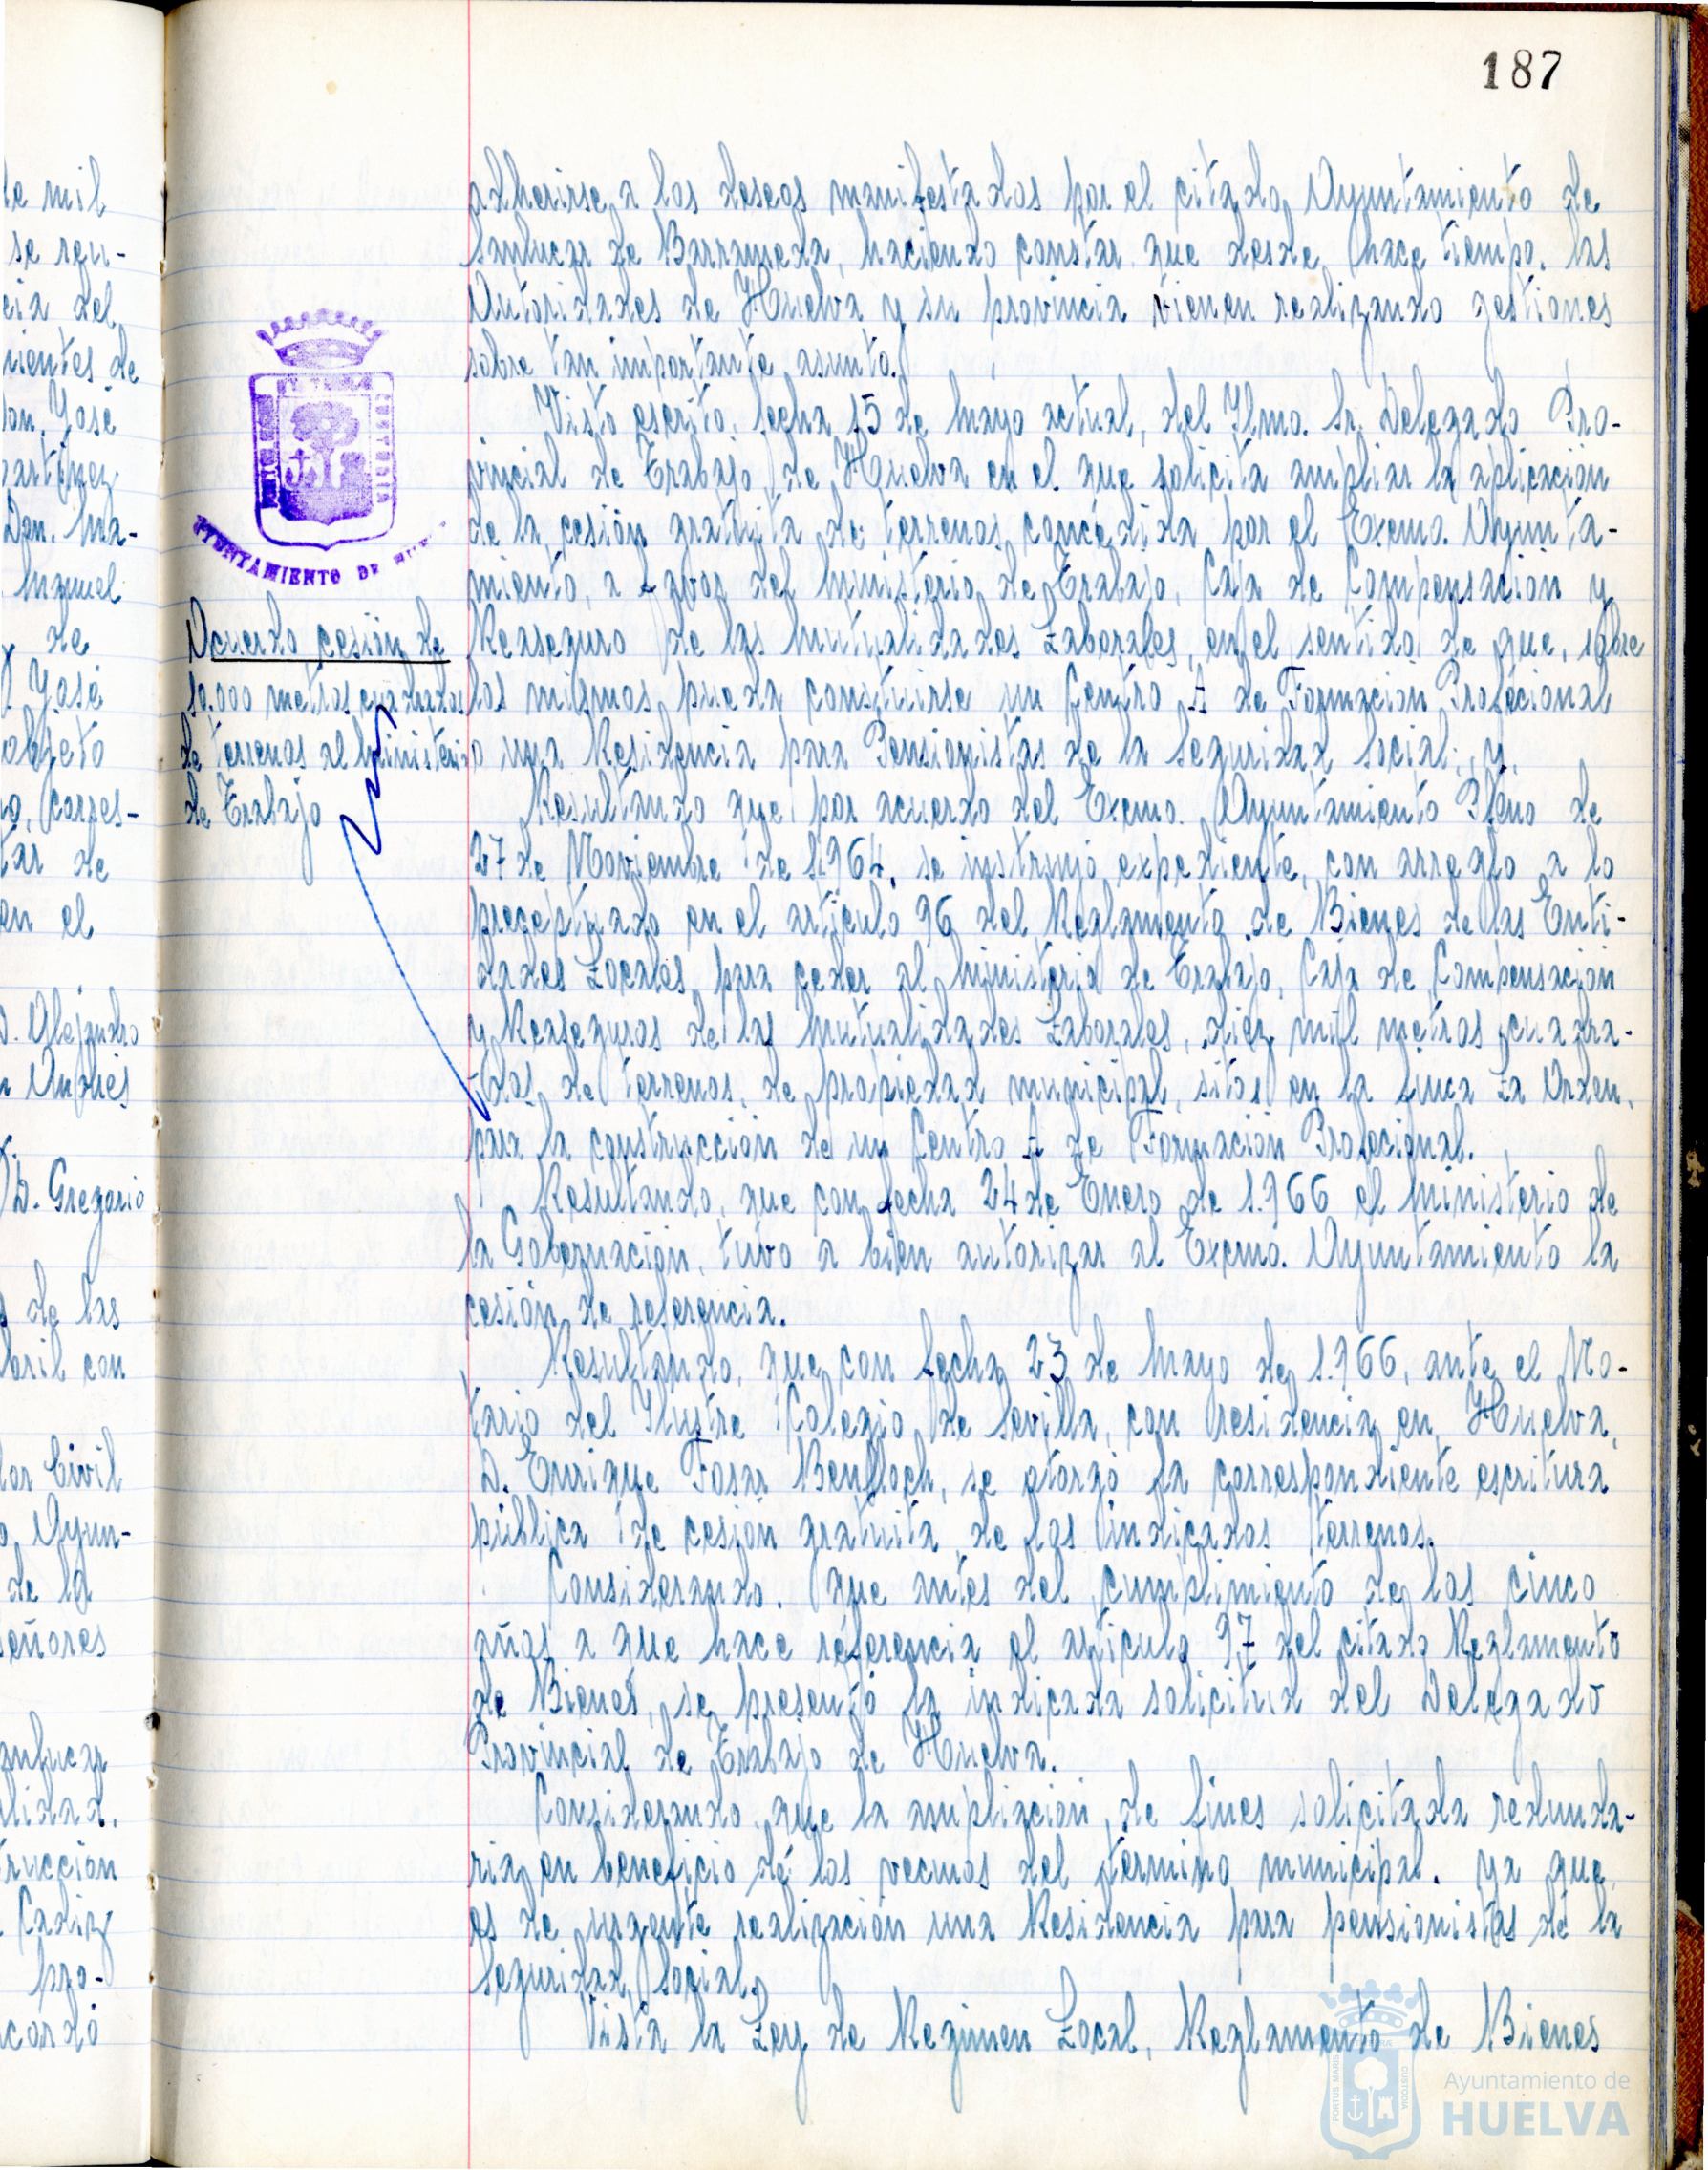 187
adherirse a los deseos manifestados por el citado Ayuntamiento de
Sanlucar de Barrameda, haciendo constar que desde hace tiempo, las
Autoridades de Huelva y su provincia vienen realizando gestiones
sobre tan importante asunto.
Visto escrito, fecha 15 de Mayo actual, del Ylmo. Sr. Delegado Pro-
vincial de Trabajo de Huelva en el que solicita ampliar la aplicación
de la cesión gratuita de terrenos concedida por el Excmo. Ayunta-
miento, a favor del Ministerio de Trabajo, Caja de Compensación y
Reaseguro de las Mutualidades Laborales, en el sentido de que, sobre
los mismos pueda constuirse un Centro A de Formación Profecional
o una Residencia para Pensionistas de la Seguridad Social; y,
Resultando que, por acuerdo del Excmo. Ayuntamiento Pleno de
27 de Noviembre de 1.964, se instruyó expediente, con arreglo a lo
preceptuado en el artículo 96 del Reglamento de Bienes de las Enti-
dades Locales, para ceder al Ministerio de Trabajo, Caja de Compensación
y Reaseguros de las Mutualidades Laborales, diez mil metros cuadra-
dos de terrenos, de propiedad municipal, sitos en la finca La Orden,
para la construcción de un Centro A de Formación Profecional.
Resultando, que con fecha 24 de Enero de 1.966 el Ministerio de
la Gobernación, tuvo a bien autorizar al Excmo. Ayuntamiento la
cesión de referencia.
Resultando, que con fecha 23 de Mayo de 1.966, ante el No-
tario del Ylustre Colegio de Sevilla, con residencia en Huelva,
D. Enrique Fosar Benlloch, se otorgó la correspondiente escritura
pública de cesión gratuita de los indicados terrenos.
Considerando, que antes del cumplimiento de los cinco
años a que hace referencia el artículo 97 del citado Reglamento
de Bienes, se presentó la indicada solicitud del Delegado
Provincial de Trabajo de Huelva.
Considerando, que la ampliación de fines solicitada redunda-
ria en beneficio de los vecinos del término municipal, ya que
es de urgente realización una Residencia para pensionistas de la
Seguridad Social.
Vista la Ley de Regimen Local, Reglamento de Bienes
Acuerdo cesión de
10.000 metros cuadrados
de terrenos al Ministerio
de Trabajo
AYUNTAMIENTO DE
de mil
se reu-
cia del
nientes de
Don José
Martinez
Don Ma-
Manuel
de
José
objeto
corres-
tar de
en el
D. Alejandro
Andrés
D. Gregorio
de las
Abril con
Civil
Ayun-
de la
señores
Sanlucar
trucción
Cadiz
pro-
acordó
Ayuntamiento de
HUELVA